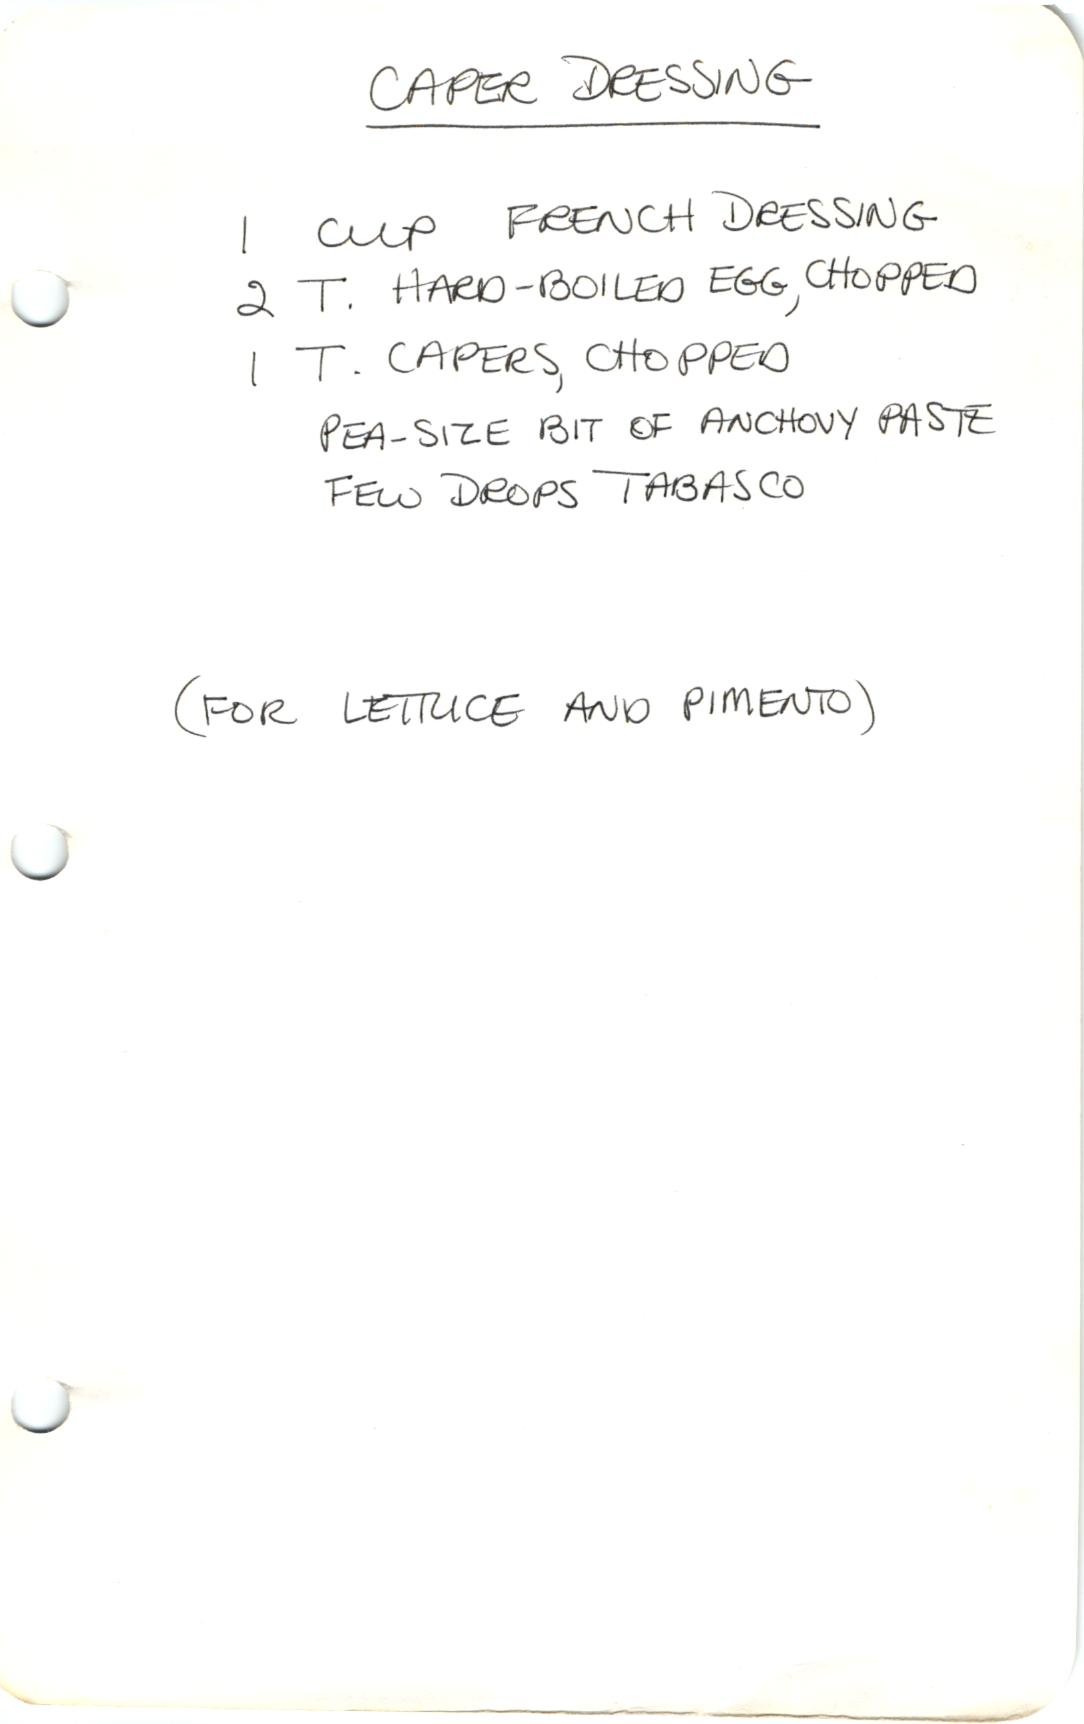 CAPER DRESSING
1 CUP FRENCH DRESSING
2 T. HARD-BOILED EGG, CHOPPED
1 T. CAPERS, CHOPPED
PEA-SIZE BIT OF ANCHOVY PASTE
FEW DROPS TABASCO
(FOR LETTUCE AND PIMENTO)